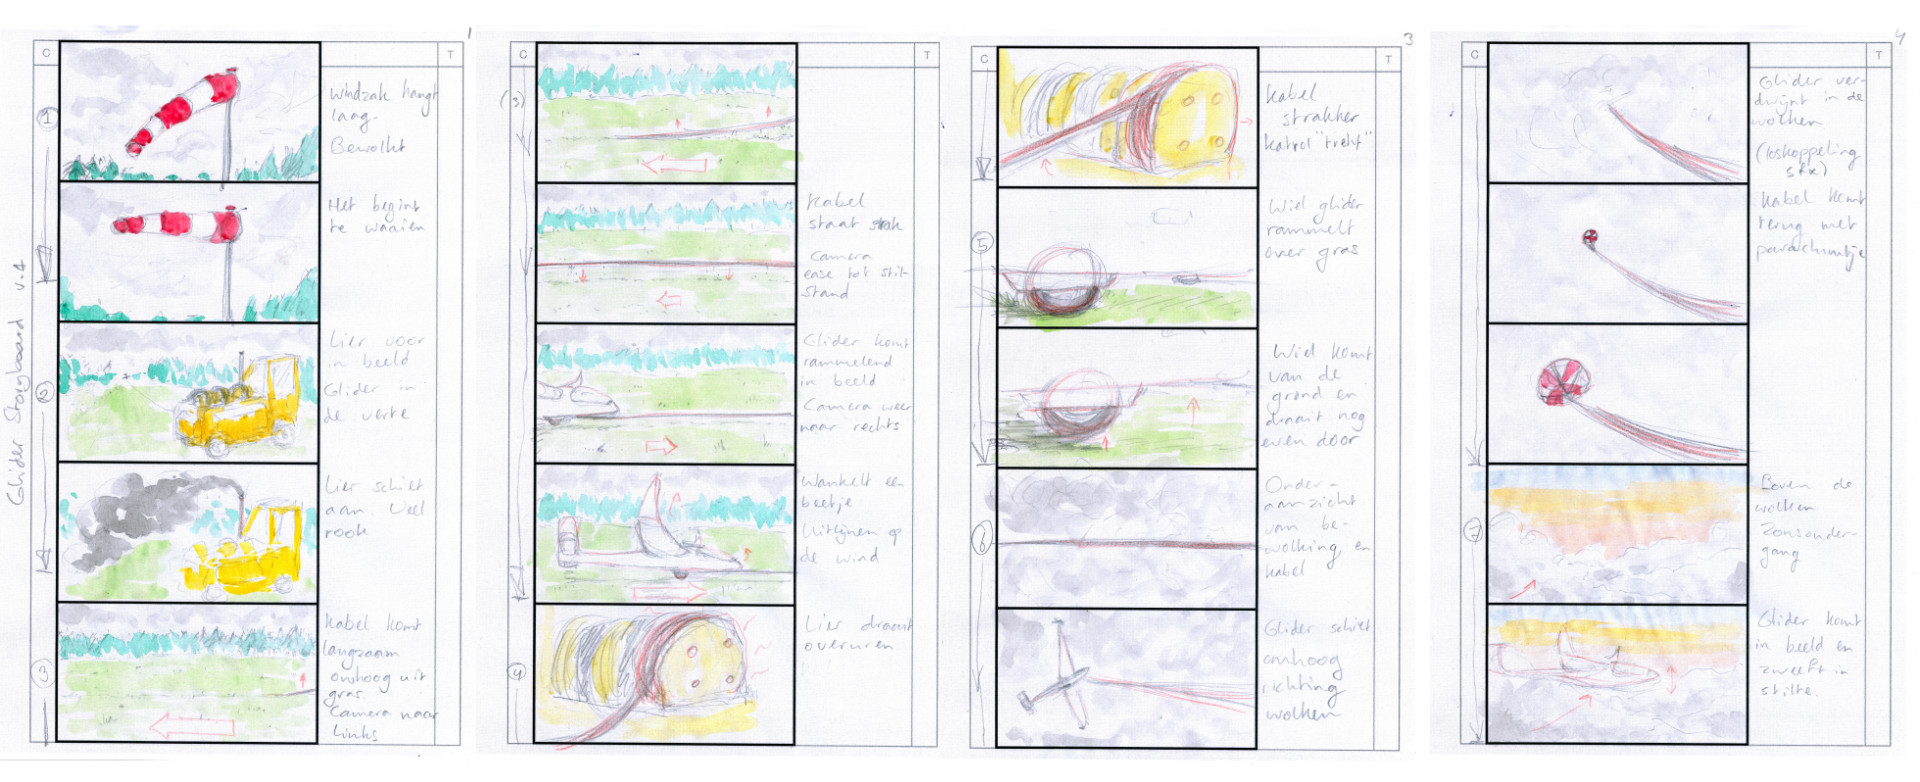 1
C
T
Glider Storyboard v.4
1
Windzak hangt
laag.
Bewolkt
Het begint
te waaien
2
Lier voor
in beeld
Glider in
de verte
Lier schiet
aan. Veel
rook
3
Kabel komt
langzaam
omhoog uit
gras.
Camera naar
links
C
T
(3)
Kabel
staat strak
Camera
ease tot stil-
stand
Glider komt
rammelend
in beeld
Camera weer
naar rechts
Wankelt een
beetje
Uitlijnen op
de wind
4
Lier draait
overuren
3
C
T
Kabel
strakker
katrol "trekt"
5
Wiel glider
rammelt
over gras
Wiel komt
van de
grond en
draait nog
even door
6
Onder-
aanzicht
van be-
wolking en
kabel
Glider schiet
omhoog
richting
wolken
4
C
T
Glider ver-
dwijnt in de
wolken
(loskoppeling
sfx)
Kabel komt
terug met
parachuutje
7
Boven de
wolken
Zonsonder-
gang
Glider komt
in beeld en
zweeft in
stilte.